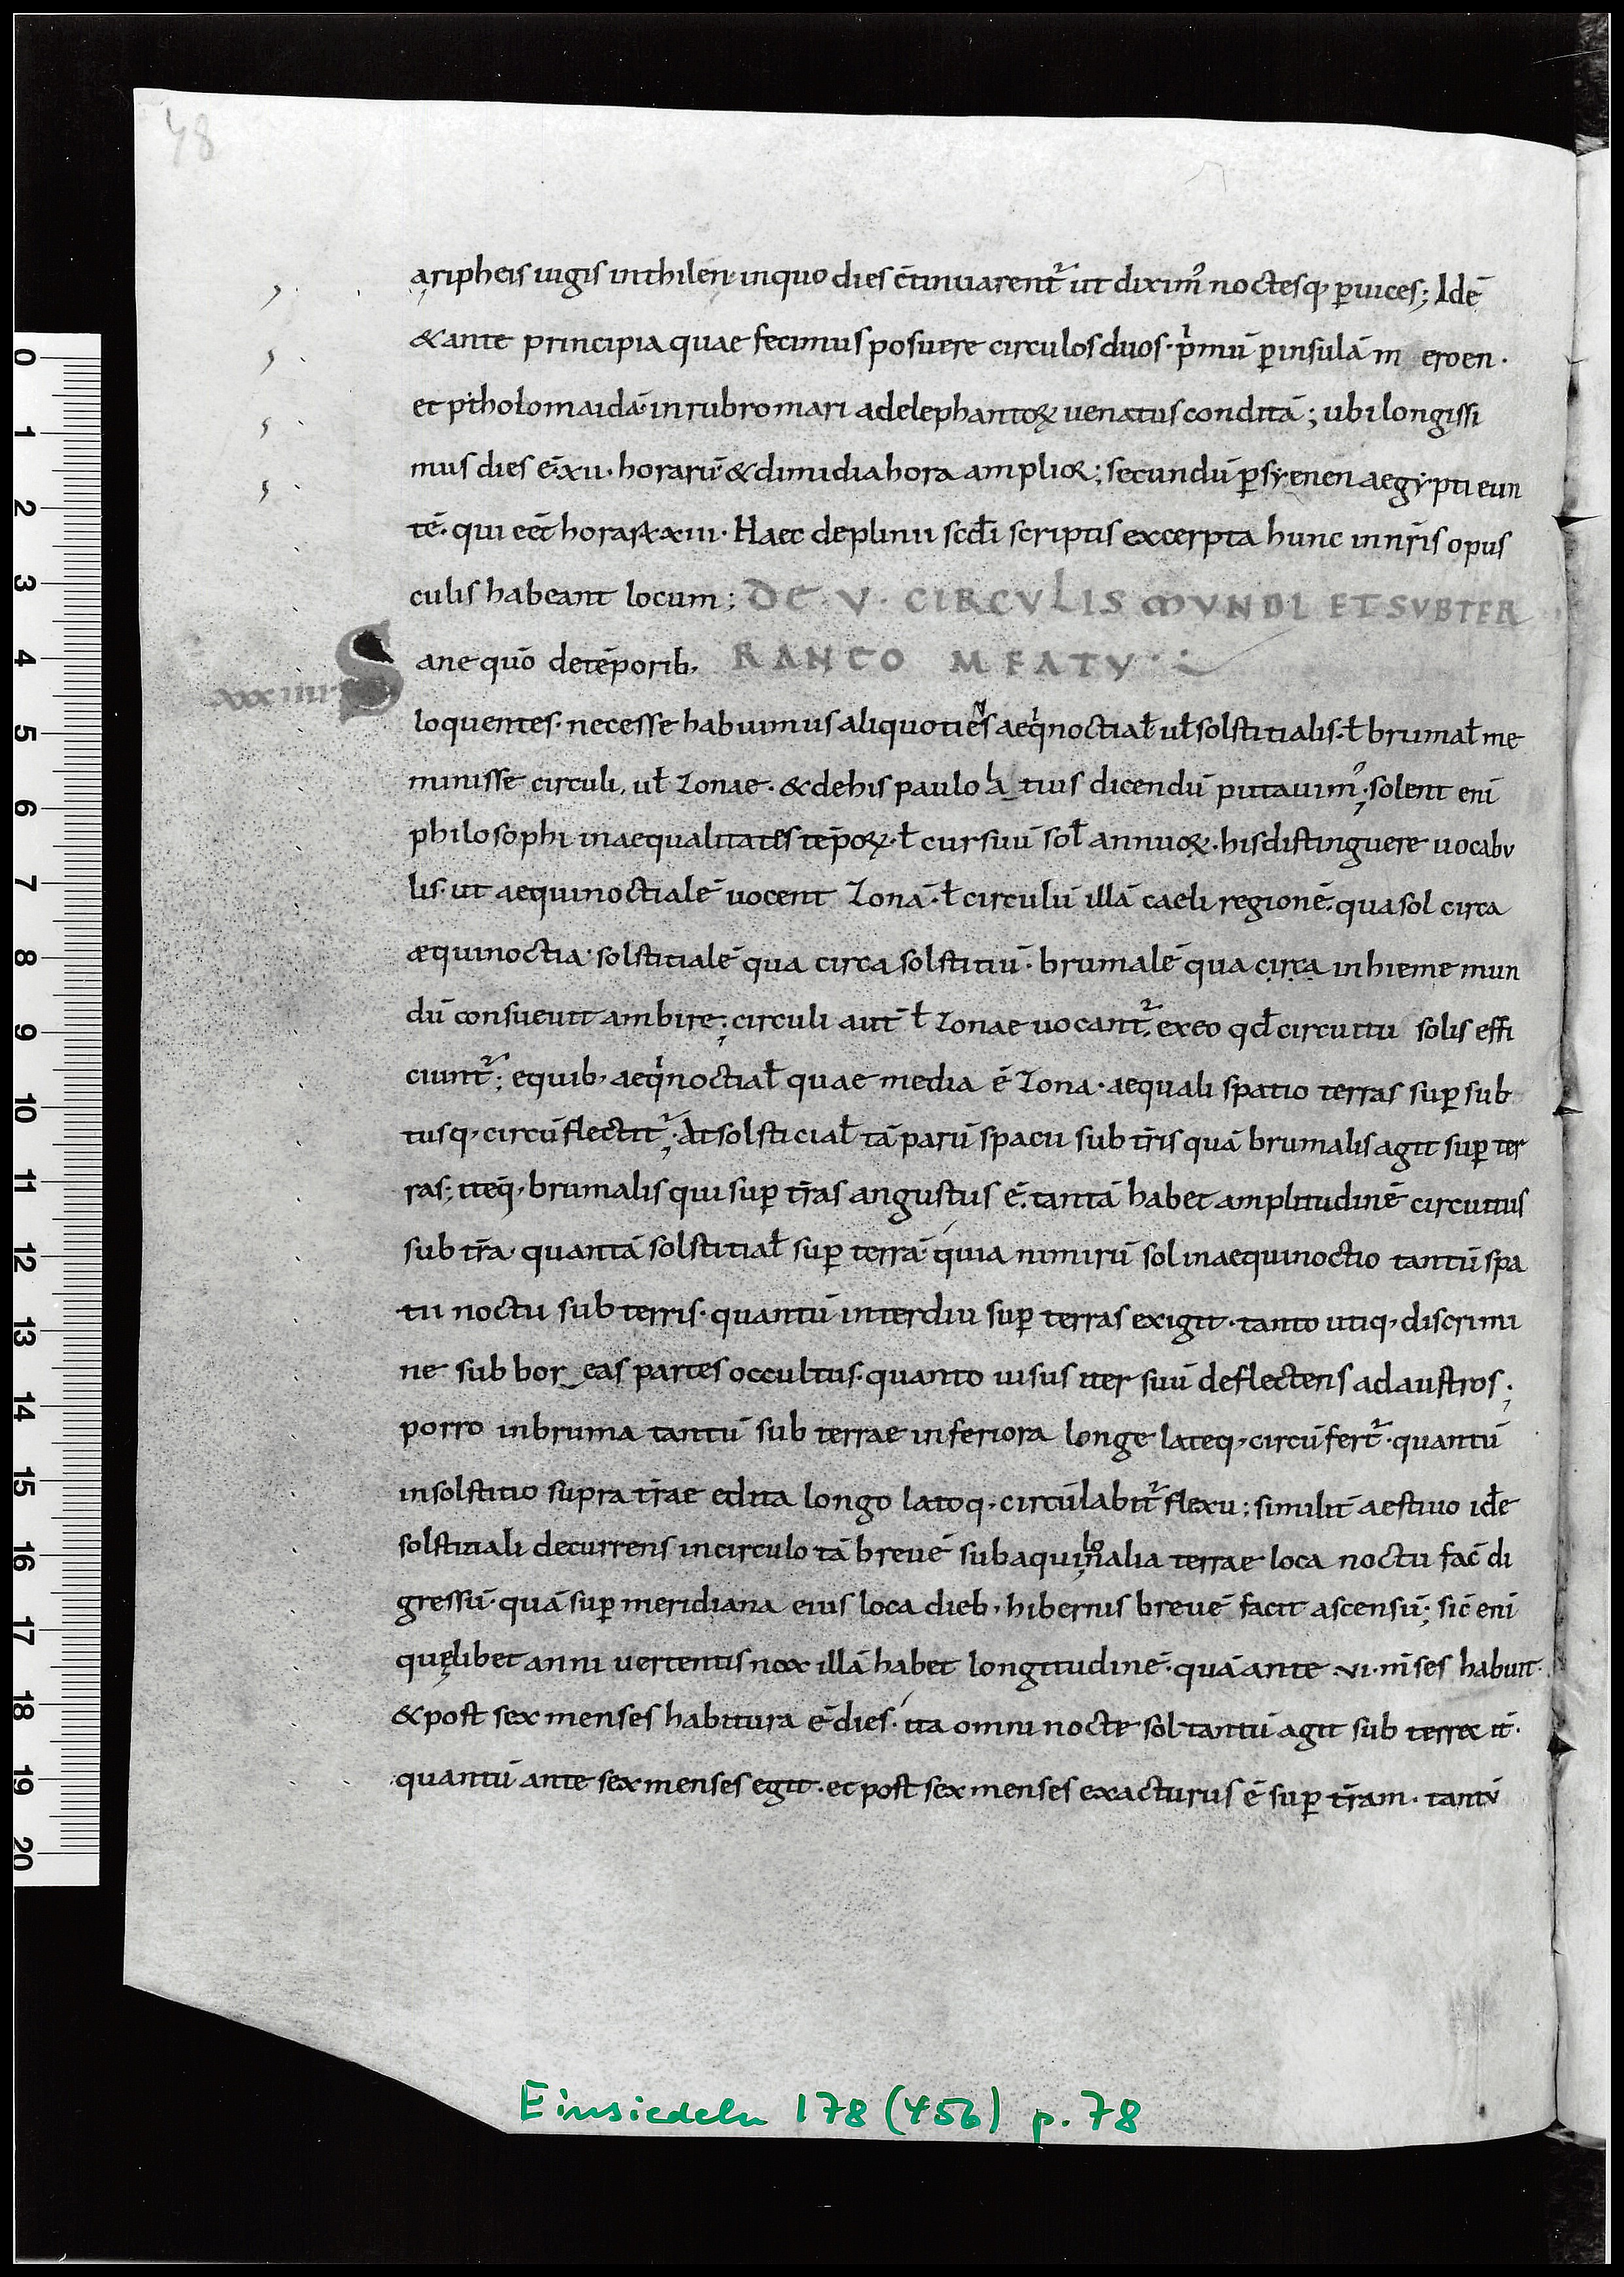 78
aripheis iugis inthilen· inquo dies c̄tinuarent᷑ ut dixim᷒ noctesq· ꝑuices; Idē
&ante principia quae fecimus posuere circulos duos· pͥmū ꝑinsulā m eroen·
et ptholomaidā· inrubromari adelephantoꝝ uenatus conditā; ubi longissi
mus dies ē· xii· horarū &dimidia hora amplior; secundū ꝑsyenen aegypti eun
tē· qui eēt horaꝝ xiii· Haec deplinii scd̄i scriptis excerpta hunc innr̄is opus
culis habeant locum; DE· V· CIRCVLIS MVNDI ET SVBTER
Sane quō detēporib· RANEO MEATV·
xxxiiii·
loquentes· necesse habuimus aliquotieNs aeqͥnoctial̄ ul̄ solstitialis· ł brumal̄ me
minisse circuli, ul̄ zonae· &dehis paulo la tius dicendū putauim᷒; solent enī
philosophi inaequalitates tēpoꝝ· ł cursuū sol̄ annuoꝝ· hisdistinguere uocabu
lis· ut aequinoctialē uocent zonā· ł circulū illā caeli regionē· quasol circa
æquinoctia· solstitialē qua circa solstitiū· brumalē qua circa inhieme mun
dū consueuit ambire; circuli aut̄ ł zonae uocant᷑· exeo qd̄ circuitu solis effi
ciunt᷑; equib· aeqͥnoctial̄ quae media ē zona· aequali spatio terras suꝑ sub
tusq· circūflectit᷑; At solsticial̄ tā parū spacii sub tr̄is quā brumalis agit suꝑ ter
ras; iteq̄· brumalis qui suꝑ tr̄as angustus ē· tantā habet amplitudinē circuitus
sub tr̄a· quantā solstitial̄ suꝑ terrā· quia nimirū sol inaequinoctio tantū spa
tii noctu sub terris· quantū interdiu suꝑ terras exigit· tanto utiq· discrimi
ne sub bor eas partes occultus· quanto uisus iter suū deflectens adaustros;
porro inbruma tantū sub terrae inferiora longe lateq· circūfert᷑· quantū
insolstitio supra tr̄ae edita longo latoq· circūlabit᷑ flexu; similit̄ aestiuo idē
solstitiali decurrens incirculo tā breuē subaquiloͦnalia terrae loca noctu fac̄ di
gressū· quā suꝑ meridiana eius loca dieb· hibernus breuē facit ascensū; sic enī
quęlibet anni uertentis nox illā habet longitudinē· quā ante ·vi· m̄ses habuit·
&post sex menses habitura ē dies· ita omni nocte sol tantū agit sub terra it̄·
quantū ante sex menses egit· et post sex menses exacturus ē suꝑ tr̄am· tantū
Einsiedeln 178 (456) p. 78
0
1
2
3
4
5
6
7
8
9
10
11
12
13
14
15
16
17
18
19
20